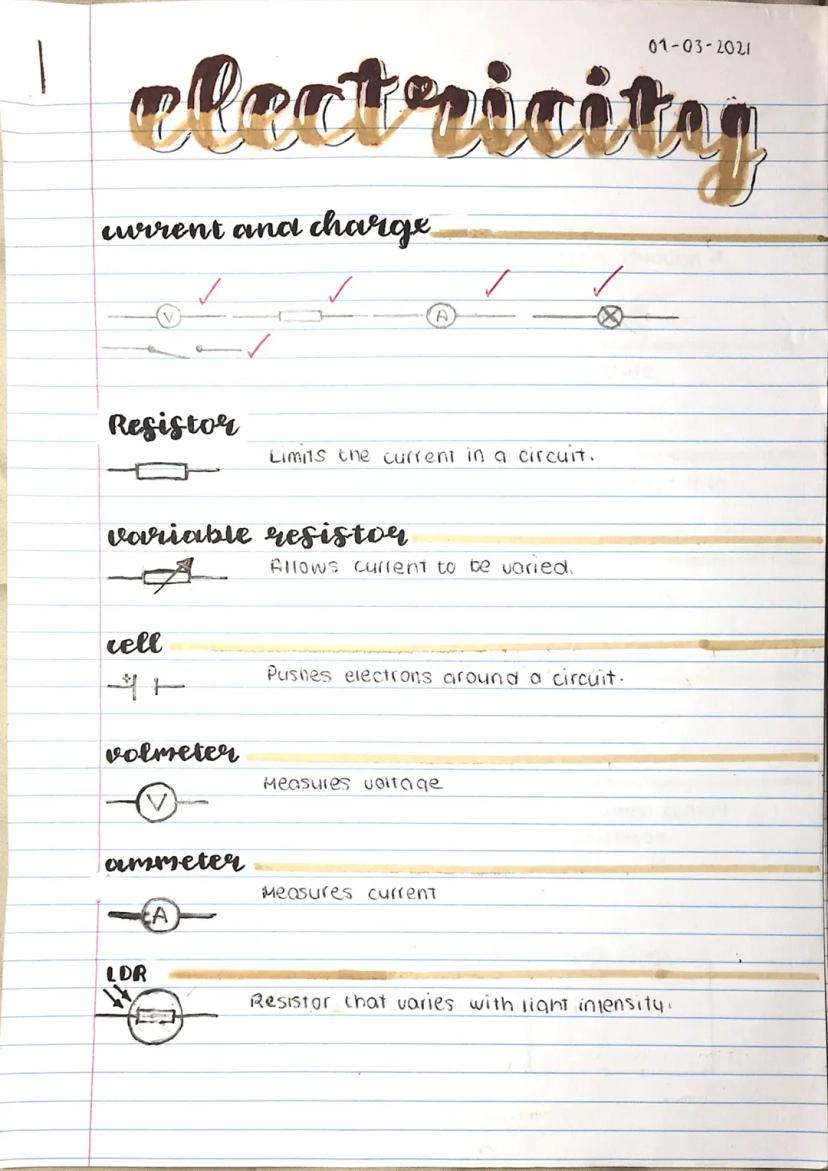 01-03-2021
electricity
current and charge
V A
Resistor
Limits the current in a circuit.
variable resistor
Allows current to be varied.
cell
+
Pushes electrons around a circuit.
volmeter
Measures voltage
V
ammeter
Measures current
A
LDR
Resistor that varies with light intensity.